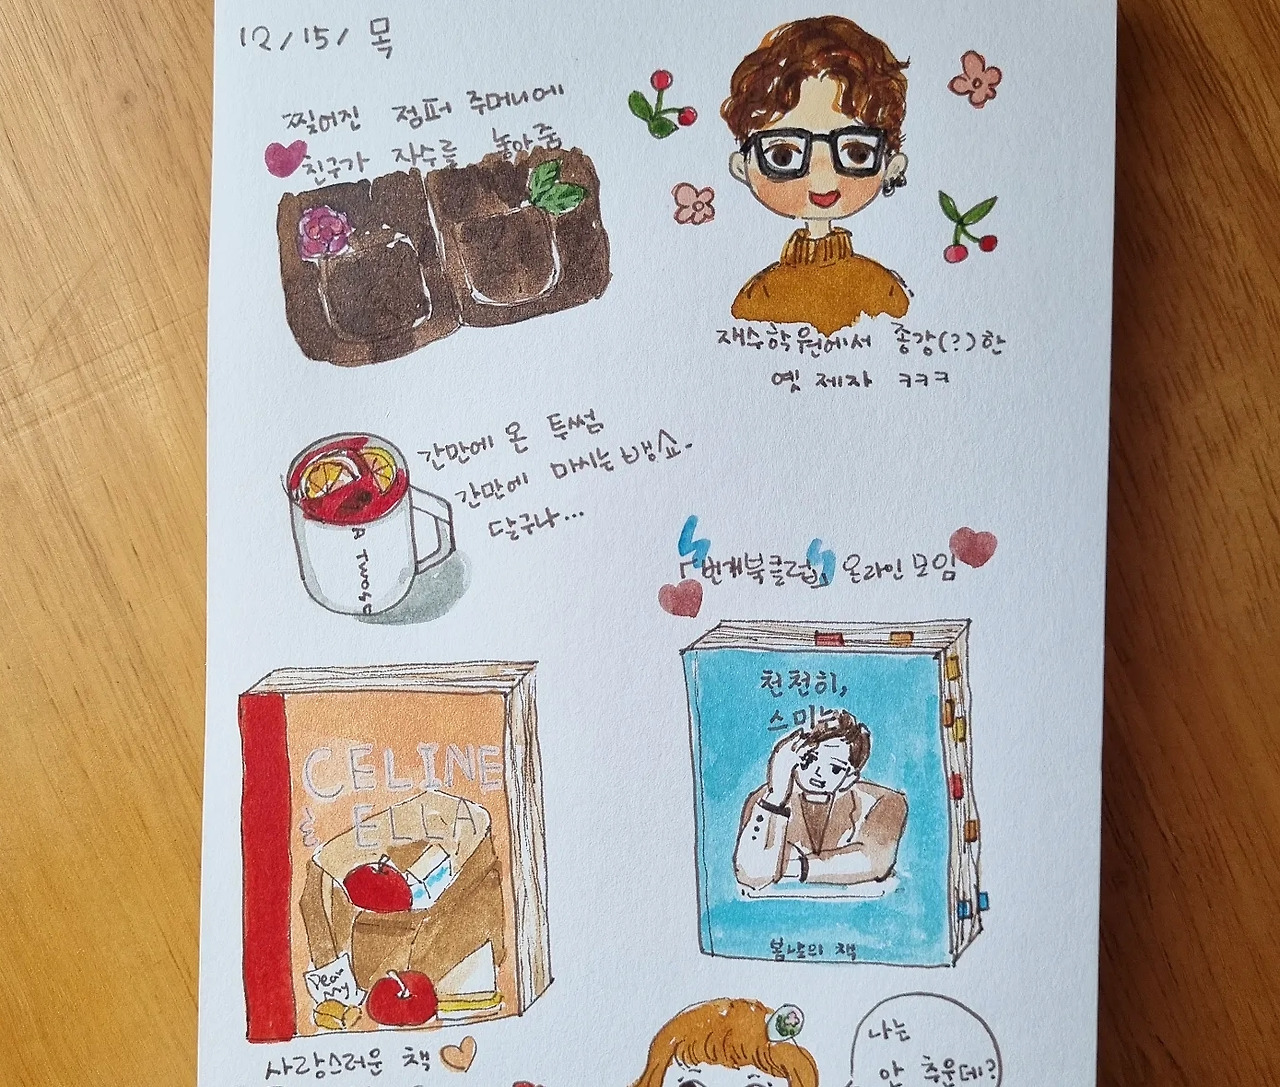 12/15/ 목
찢어진 점퍼 주머니에
친구가 자수를 놓아줌
재수학원에서 종강(?)한
옛 제자 ㅋㅋㅋ
간만에 온 투썸
간만에 마시는 뱅쇼.
달구나...
A TWOSO
「번개북클럽」 온라인 모임
천천히,
스미는
봄날의 책
CELINE
& ELLA
Dear
My,
사랑스러운 책
나는
안 추운데?